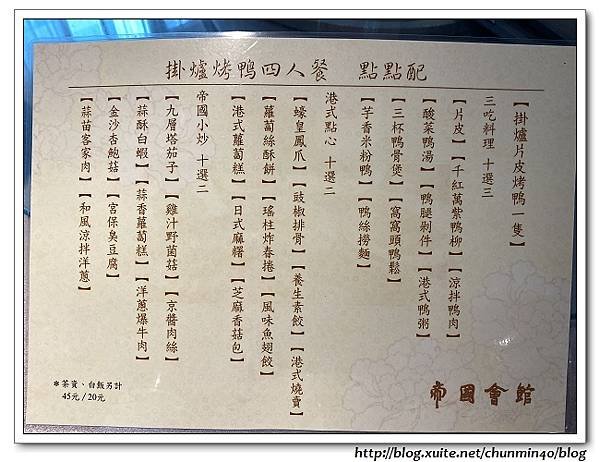 掛爐烤鴨四人餐 點點配
【掛爐片皮烤鴨一隻】
三吃料理 十選三
【片皮】【千紅萬紫鴨柳】【涼拌鴨肉】
【酸菜鴨湯】【鴨腿剁件】【港式鴨粥】
【三杯鴨骨煲】【窩窩頭鴨鬆】
【芋香米粉鴨】【鴨絲撈麵】
港式點心 十選二
【蠔皇鳳爪】【豉椒排骨】【養生素餃】【港式燒賣】
【蘿蔔絲酥餅】【瑤柱炸春捲】【風味魚翅餃】
【港式蘿蔔糕】【日式麻糬】【芝麻香菇包】
帝國小炒 十選二
【九層塔茄子】【雞汁野菌菇】【京醬肉絲】
【蒜酥白蝦】【蒜香蘿蔔糕】【洋蔥爆牛肉】
【金沙杏鮑菇】【宮保臭豆腐】
【蒜苗客家肉】【和風涼拌洋蔥】
*茶資、白飯另計
45元/20元
帝國會館
http://blog.xuite.net/chunmin40/blog